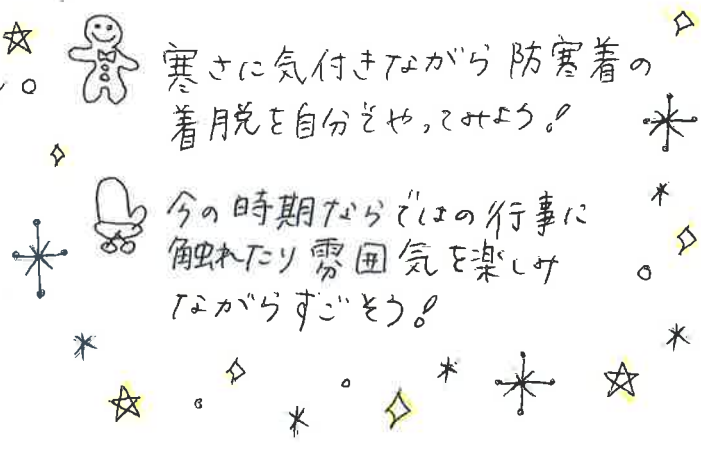 寒さに気付きながら防寒着の
着脱を自分でやってみよう!
今の時期ならではの行事に
触れたり雰囲気を楽しみ
ながらすごそう!